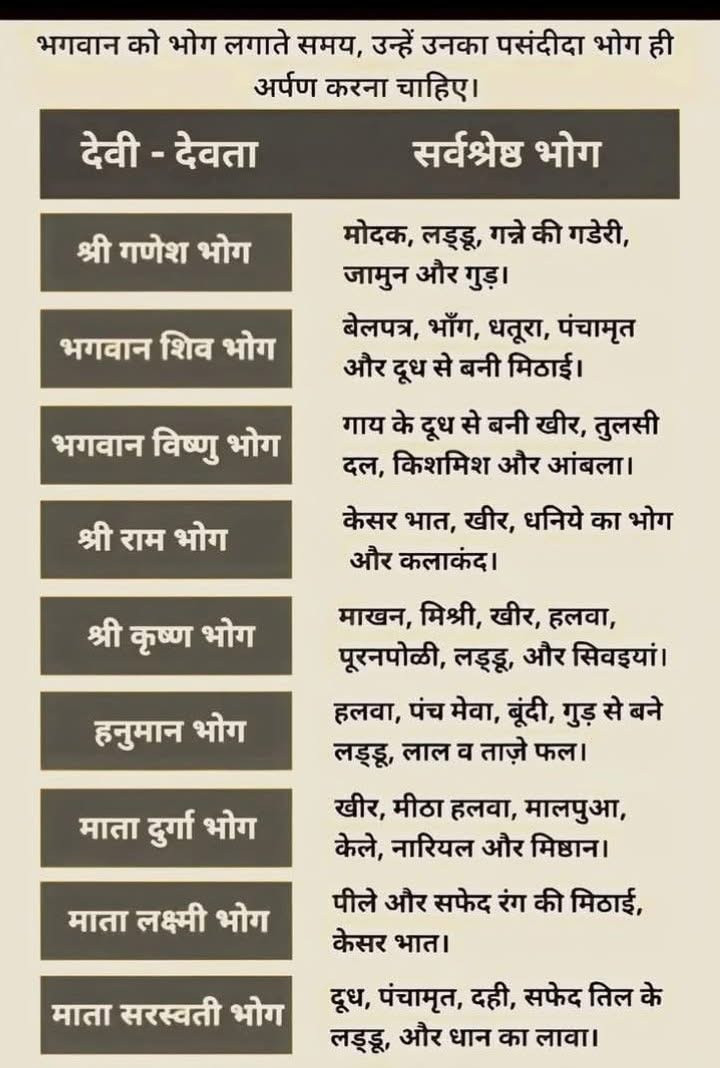 भगवान को भोग लगाते समय, उन्हें उनका पसंदीदा भोग ही
अर्पण करना चाहिए।
देवी - देवता सर्वश्रेष्ठ भोग
श्री गणेश भोग
मोदक, लड्डू, गन्ने की गडेरी,
जामुन और गुड़।
भगवान शिव भोग
बेलपत्र, भाँग, धतूरा, पंचामृत
और दूध से बनी मिठाई।
भगवान विष्णु भोग
गाय के दूध से बनी खीर, तुलसी
दल, किशमिश और आंबला।
श्री राम भोग
केसर भात, खीर, धनिये का भोग
और कलाकंद।
श्री कृष्ण भोग
माखन, मिश्री, खीर, हलवा,
पूरनपोळी, लड्डू, और सिवइयां।
हनुमान भोग
हलवा, पंच मेवा, बूंदी, गुड़ से बने
लड्डू, लाल व ताज़े फल।
माता दुर्गा भोग
खीर, मीठा हलवा, मालपुआ,
केले, नारियल और मिष्ठान।
माता लक्ष्मी भोग
पीले और सफेद रंग की मिठाई,
केसर भात।
माता सरस्वती भोग
दूध, पंचामृत, दही, सफेद तिल के
लड्डू, और धान का लावा।